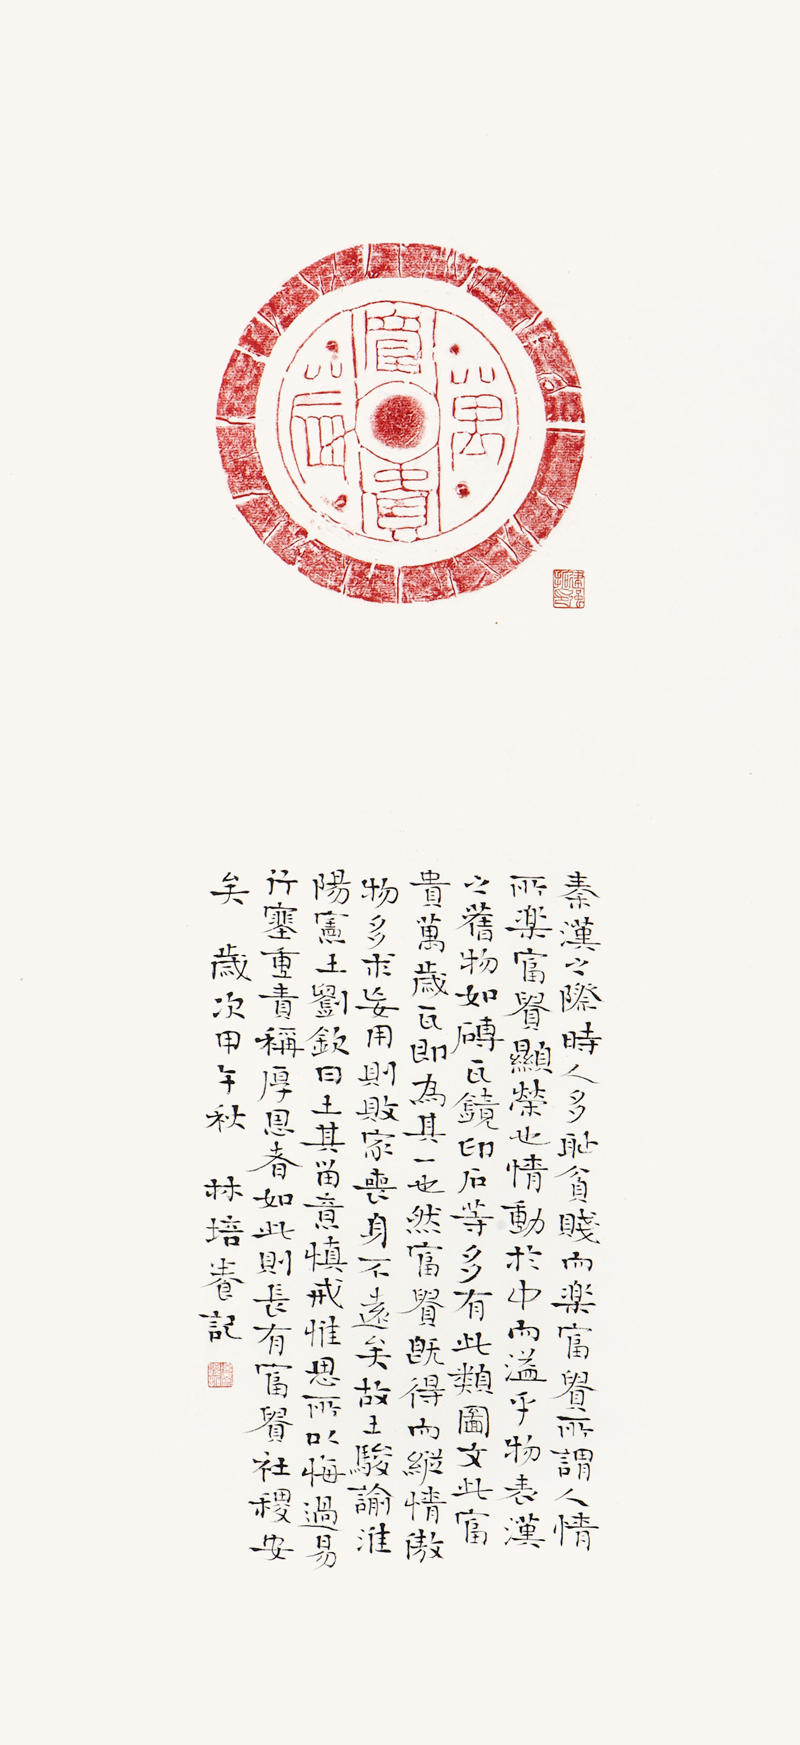 富貴萬歲
秦漢之際時人多恥貧賤而楽富貴所謂人情
所楽富貴顯榮也情動於中而溢乎物表漢
之舊物如磚瓦鏡印石等多有此類圖文此富
貴萬歲瓦即為其一也然富貴既得而縱情傲
物多求妄用則敗家喪身不遠矣故王駿諭淮
陽憲王劉欽曰王其留意慎戒惟思所以悔過易
行塞重責稱厚恩者如此則長有富貴社稷安
矣　歲次甲午秋　林培養記